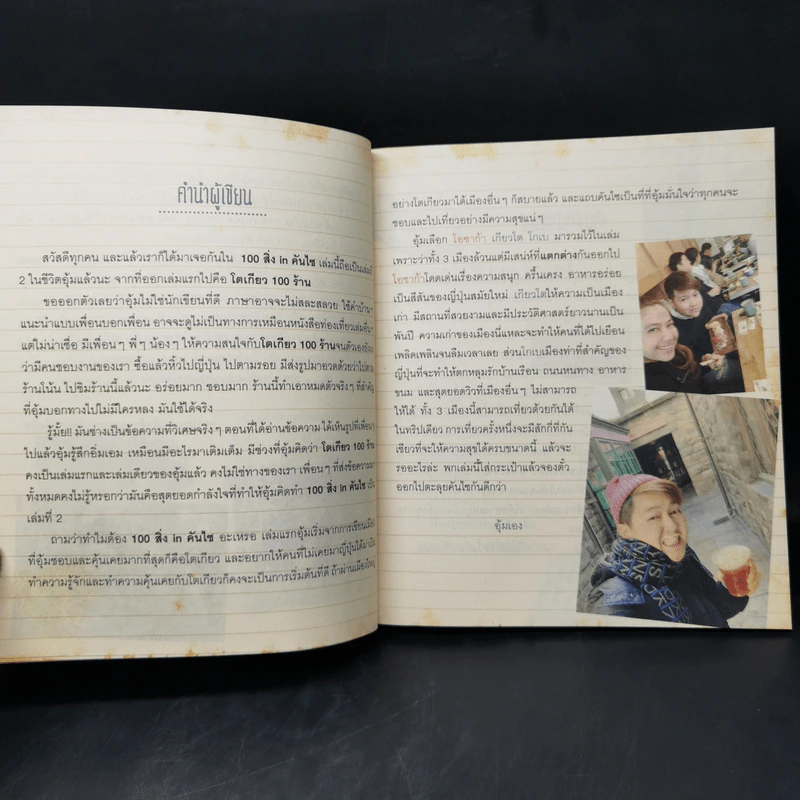 คำนำผู้เขียน
สวัสดีทุกคน และแล้วเราก็ได้มาเจอกันใน 100 สิ่ง in คันไซ เล่มนี้ถือเป็นเล่มที่
2 ในชีวิตอุ้มแล้วนะ จากที่ออกเล่มแรกไปคือ โตเกียว 100 ร้าน
ขอออกตัวเลยว่าอุ้มไม่ใช่นักเขียนที่ดี ภาษาอาจจะไม่สละสลวย ใช้คำบ้านๆ
แนะนำแบบเพื่อนบอกเพื่อน อาจจะดูไม่เป็นทางการเหมือนหนังสือท่องเที่ยวเล่มอื่นๆ
แต่ไม่น่าเชื่อ มีเพื่อนๆ พี่ๆ น้องๆ ให้ความสนใจกับโตเกียว 100 ร้านจนตัวเองยัง
ว่ามีคนชอบงานของเรา ซื้อแล้วหิ้วไปญี่ปุ่น ไปตามรอย มีส่งรูปมาอวดด้วยว่าไป
ร้านโน้น ไปชิมร้านนี้แล้วนะ อร่อยมาก ชอบมาก ร้านนี้ทำเอาหมดตัวจริงๆ ที่สำคัญ
ที่อุ้มบอกทางไปไม่มีใครหลง มันใช้ได้จริง
รู้มั้ย!! มันช่างเป็นข้อความที่วิเศษจริงๆ ตอนที่ได้อ่านความ ได้เห็นรูปที่เพื่อนๆ
ไปแล้วอุ้มรู้สึกอิ่มเอม เหมือนมีอะไรมาเติมเต็ม มีช่วงที่อุ้มคิดว่า โตเกียว 100 ร้าน
คงเป็นเล่มแรกและเล่มเดียวของอุ้มแล้ว คงไม่ใช่ทางของเรา เพื่อนๆ ที่ส่งข้อความมา
ทั้งหมดคงไม่รู้หรอกว่ามันคือสุดยอดกำลังใจที่ทำให้อุ้มคิดทำ 100 สิ่ง in คันไซ เป็น
เล่มที่ 2
ถามว่าทำไมต้อง 100 สิ่ง in คันไซ อะเหรอ เล่มแรกอุ้มเริ่มจากการเขียนเมือง
ที่อุ้มชอบและคุ้นเคยมากที่สุดก็คือโตเกียว และอยากให้คนที่ไม่เคยมาญี่ปุ่นได้มา
ทำความรู้จักและทำความคุ้นเคยกับโตเกียวก็คงจะเป็นการเริ่มต้นที่ดี ถ้าผ่านเมืองใหญ่
อย่างโตเกียวมาได้เมืองอื่นๆ ก็สบายแล้ว และแถบคันไซเป็นที่ที่อุ้มมั่นใจว่าทุกคนจะ
ชอบและไปเที่ยวอย่างมีความสุขแน่ๆ
อุ้มเลือก โอซาก้า เกียวโต โกเบ มารวมไว้ในเล่ม
เพราะว่าทั้ง 3 เมืองล้วนแต่มีเสน่ห์ที่แตกต่างกันออกไป
โอซาก้าโดดเด่นเรื่องความสนุก ครื้นเครง อาหารอร่อย
เป็นสีสันของญี่ปุ่นสมัยใหม่ เกียวโตให้ความเป็นเมือง
เก่า มีสถานที่สวยงามและมีประวัติศาสตร์ยาวนานเป็น
พันปี ความเก่าของเมืองนี่แหละจะทำให้คนที่ได้ไปเยือน
เพลิดเพลินจนลืมเวลาเลย ส่วนโกเบเมืองท่าที่สำคัญของ
ญี่ปุ่นที่จะทำให้ตกหลุมรักบ้านเรือน ถนนหนทาง อาหาร
ขนม และสุดยอดวิวที่เมืองอื่นๆ ไม่สามารถ
ให้ได้ ทั้ง 3 เมืองนี้สามารถเที่ยวด้วยกันได้
ในทริปเดียว การเที่ยวครั้งหนึ่งจะมีสักกี่ที่กัน
เชียวที่จะให้ความสุขได้ครบขนาดนี้ แล้วจะ
รออะไรล่ะ พกเล่มนี้ใส่กระเป๋าแล้วจองตั๋ว
ออกไปตะลุยคันไซกันดีกว่า
อุ้มเอง